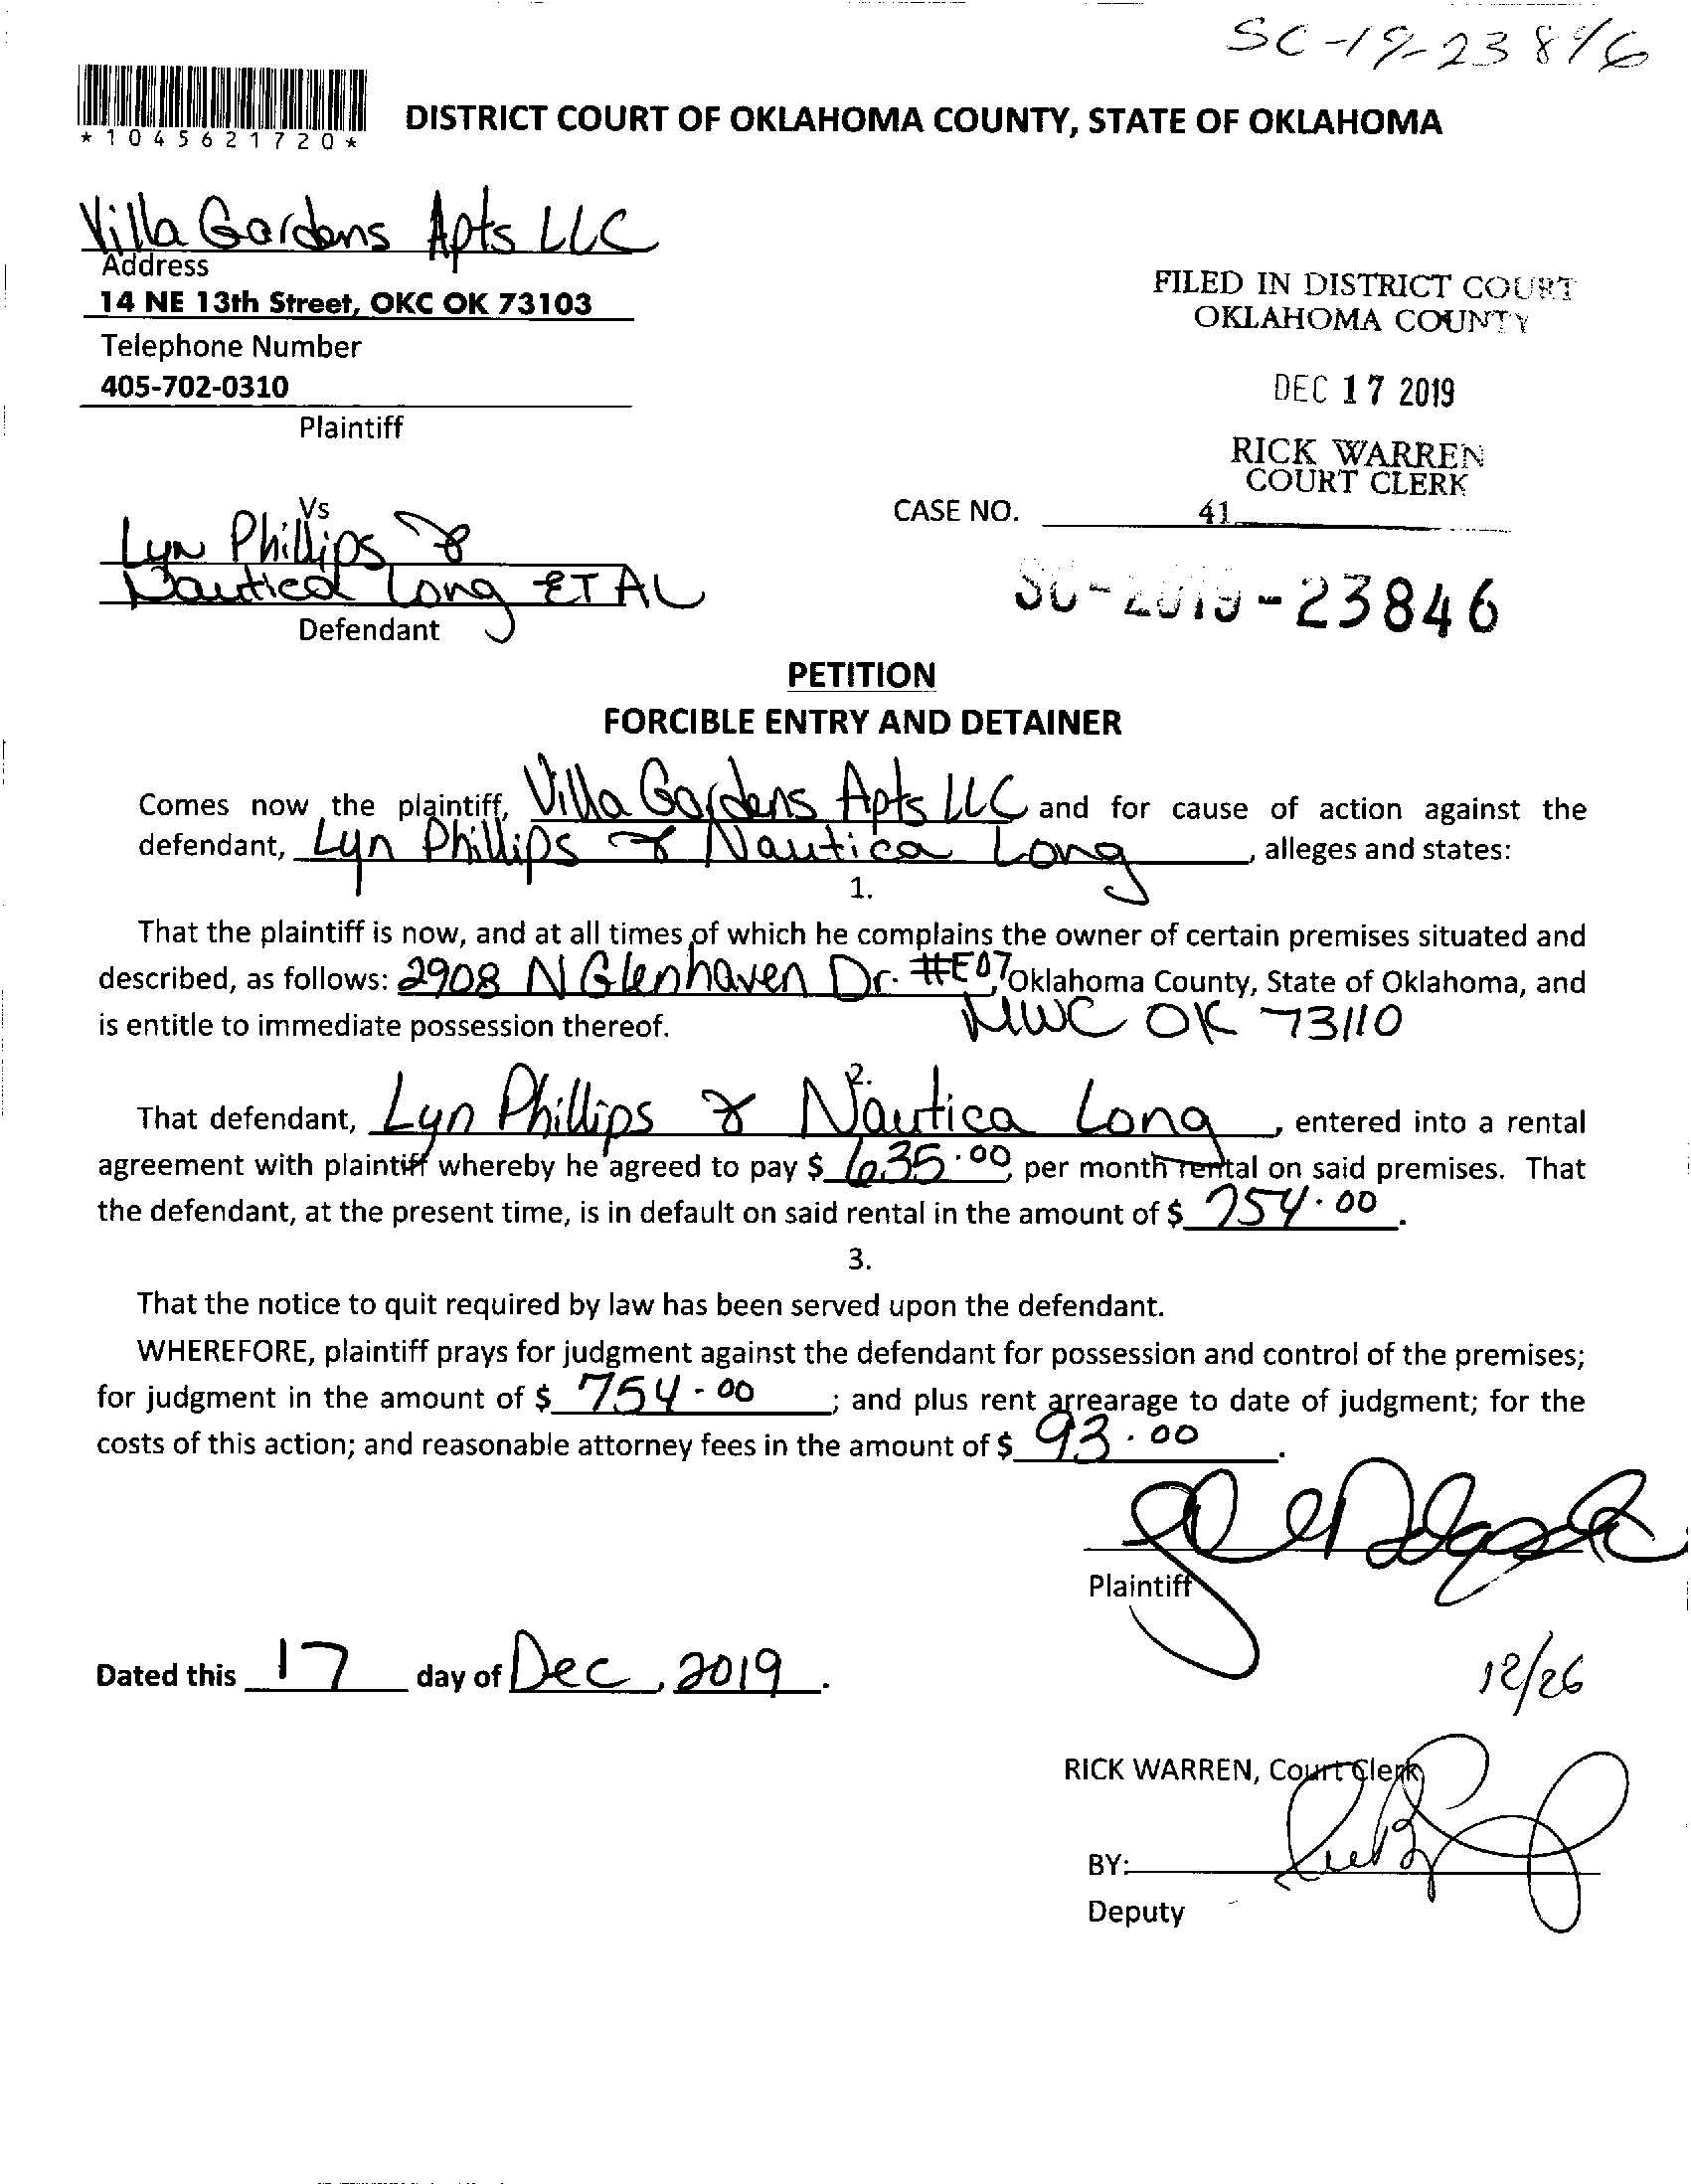 SC-19-23846
*1045621720*
DISTRICT COURT OF OKLAHOMA COUNTY, STATE OF OKLAHOMA
Villa Gardens Apts LLC
Address
14 NE 13th Street, OKC OK 73103
Telephone Number
405-702-0310
Plaintiff
FILED IN DISTRICT COURT
OKLAHOMA COUNTY
DEC 17 2019
RICK WARREN
COURT CLERK
Vs
CASE NO. 41
Lyn Phillips &
Nautica Long ET AL
Defendant
SC-2019-23846
PETITION
FORCIBLE ENTRY AND DETAINER
Comes now the plaintiff, Villa Gardens Apts LLC and for cause of action against the
defendant, Lyn Phillips & Nautica Long, alleges and states:
1.
That the plaintiff is now, and at all times of which he complains the owner of certain premises situated and
described, as follows: 2908 N Glenhaven Dr. #E07, Oklahoma County, State of Oklahoma, and
is entitle to immediate possession thereof. MWC OK 73110
2.
That defendant, Lyn Phillips & Nautica Long, entered into a rental
agreement with plaintiff whereby he agreed to pay $ 635.00, per month rental on said premises. That
the defendant, at the present time, is in default on said rental in the amount of $ 754.00.
3.
That the notice to quit required by law has been served upon the defendant.
WHEREFORE, plaintiff prays for judgment against the defendant for possession and control of the premises;
for judgment in the amount of $ 754-00; and plus rent arrearage to date of judgment; for the
costs of this action; and reasonable attorney fees in the amount of $ 93.00.
Plaintiff
Dated this 17 day of Dec, 2019.
12/26
RICK WARREN, Court Clerk
BY:
Deputy